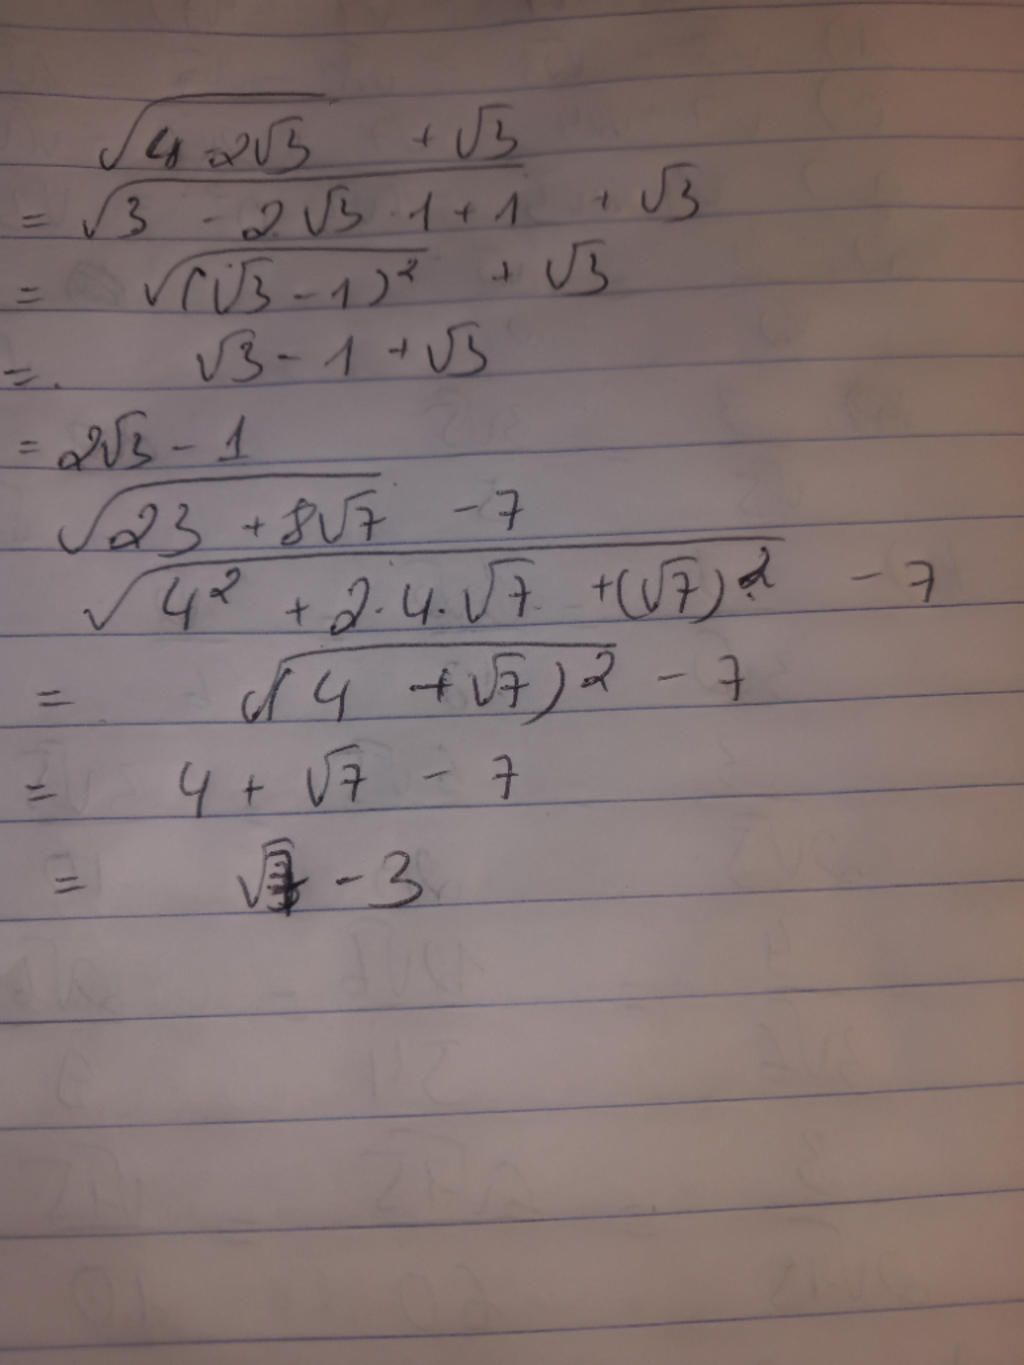 √(4 - 2√3) + √3
= √(3 - 2.√3.1 + 1) + √3
= √((√3 - 1)²) + √3
= √3 - 1 + √3
= 2√3 - 1
√(23 + 8√7) - 7
√(4² + 2.4.√7 + (√7)²) - 7
= √((4 + √7)²) - 7
= 4 + √7 - 7
= √7 - 3